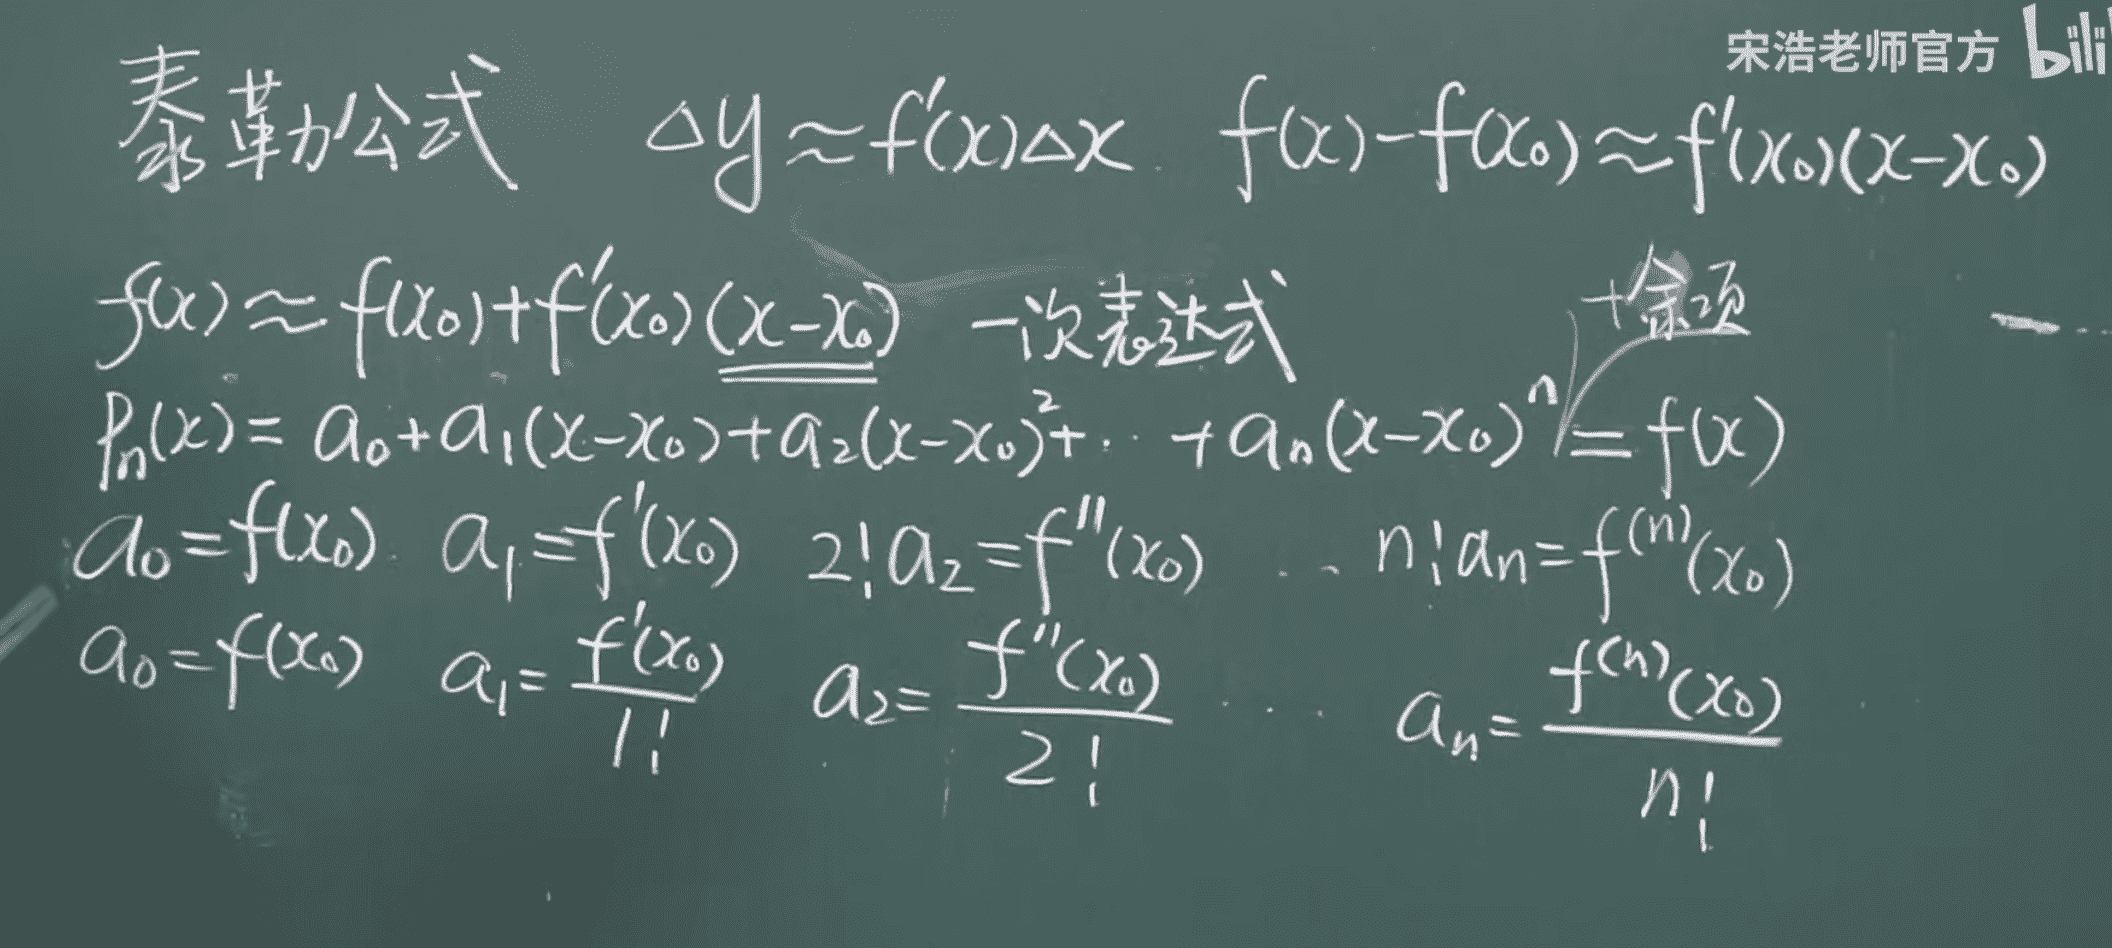 宋浩老师官方 bili
泰勒公式 △y≈f′(x)△x. f(x)-f(x₀)≈f′(x₀)(x-x₀)
f(x)≈f(x₀)+f′(x₀)(x-x₀) 一次表达式 +余项
Pₙ(x)=a₀+a₁(x-x₀)+a₂(x-x₀)²+… +aₙ(x-x₀)ⁿ=f(x)
a₀=f(x₀). a₁=f′(x₀) 2!a₂=f″(x₀) … n!aₙ=f⁽ⁿ⁾(x₀)
a₀=f(x₀) a₁=f′(x₀)/1! a₂=f″(x₀)/2! … aₙ=f⁽ⁿ⁾(x₀)/n!